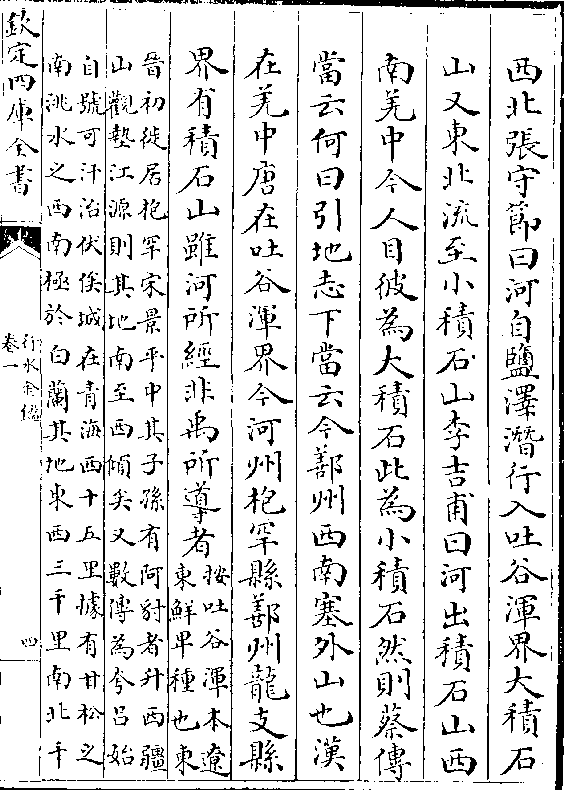 西北張守節曰河自鹽澤潛行入吐谷渾界大積石
山又東北流至小積石山李吉甫曰河出積石山西
南羌中今人目彼為大積石此為小積石然則蔡傳
當云何曰引地志下當云今鄯州西南塞外山也漢
在羌中唐在吐谷渾界今河州枹罕縣鄯州龍支縣
界有積石山雖河所經非禹所導者
按吐谷渾本遼
東鮮卑種也東
晉初徙居枹罕宋景平中其子孫有阿豺者升西疆
山觀墊江源則其地南至西傾矣又數傳為夸呂始
自號可汗治伏俟城在青海西十五里據有甘松之
南洮水之西南極於白蘭其地東西三千里南北千
欽定四庫全書
行水金鑑
卷一
四